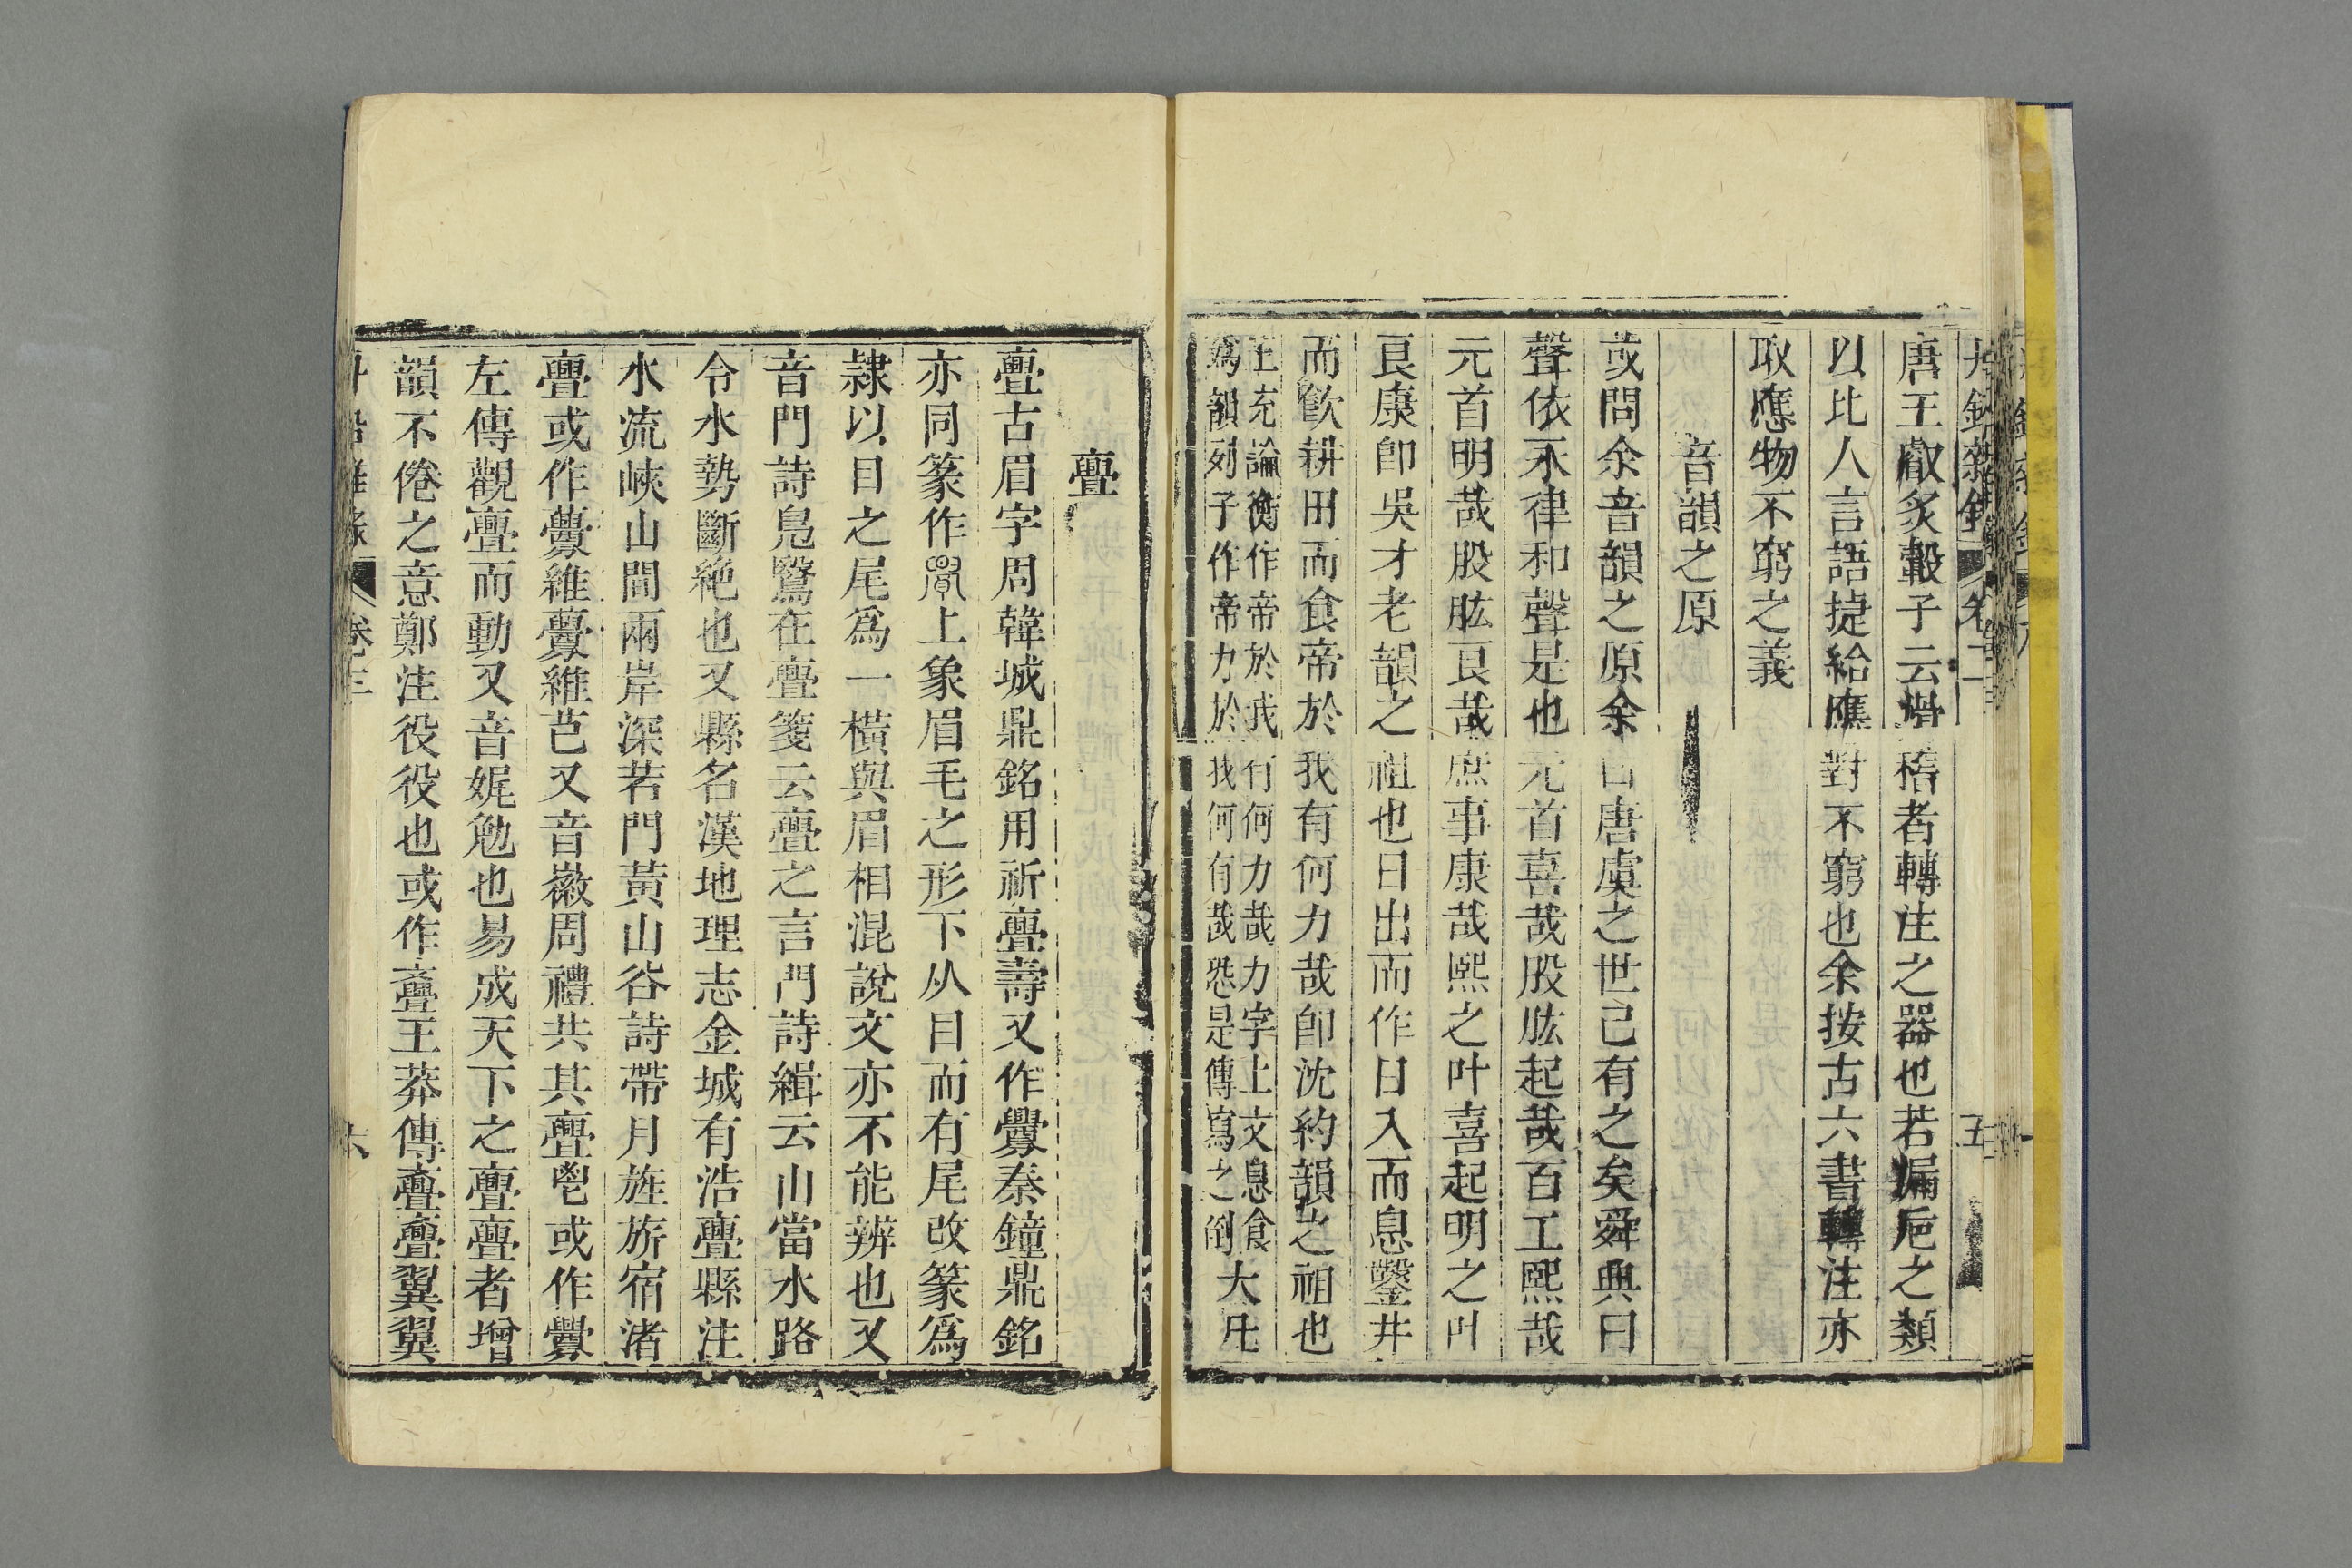 丹鉛雜錄 卷二 五
唐王叡炙轂子云滑稽者轉注之器也若漏卮之類
以比人言語捷給應對不窮也余按古六書轉注亦
取應物不窮之義
音韻之原
或問余音韻之原余曰唐虞之世已有之矣舜典曰
聲依永律和聲是也元首喜哉股肱起哉百工熙哉
元首明哉股肱良哉庶事康哉熙之叶喜起明之叶
良康卽吳才老韻之祖也日出而作日入而息鑿井
而飲耕田而食帝於我有何力哉卽沈約韻之祖也
王充論衡作帝於我有何力哉力字上文息食
爲韻列子作帝力於我何有哉恐是傳寫之倒大凡
亹
亹古眉字周韓城鼎銘用祈亹壽又作釁秦鐘鼎銘
亦同篆作上象眉毛之形下从目而有尾改篆爲
隸以目之尾爲一橫與眉相混說文亦不能辨也又
音門詩鳧鷖在亹箋云亹之言門詩緝云山當水路
令水勢斷絶也又縣名漢地理志金城有浩亹縣注
水流峽山間兩岸深若門黃山谷詩帶月旌旂宿渚
亹或作虋維虋維芑又音徽周禮共其亹鬯或作釁
左傳觀亹而動又音娓勉也易成天下之亹亹者增
韻不倦之意鄭注役役也或作斖王莽傳斖斖翼翼
卷三 六